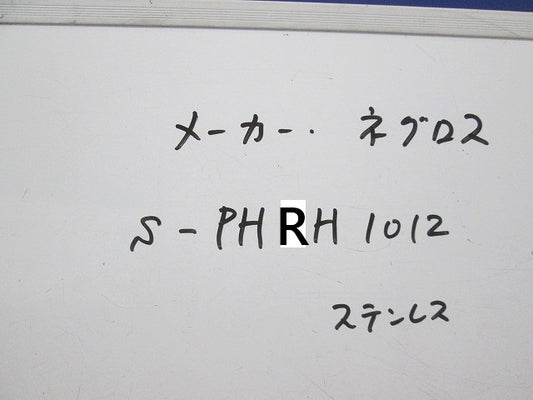 メーカー. ネグロス
S-PHRH 1012
ステンレス